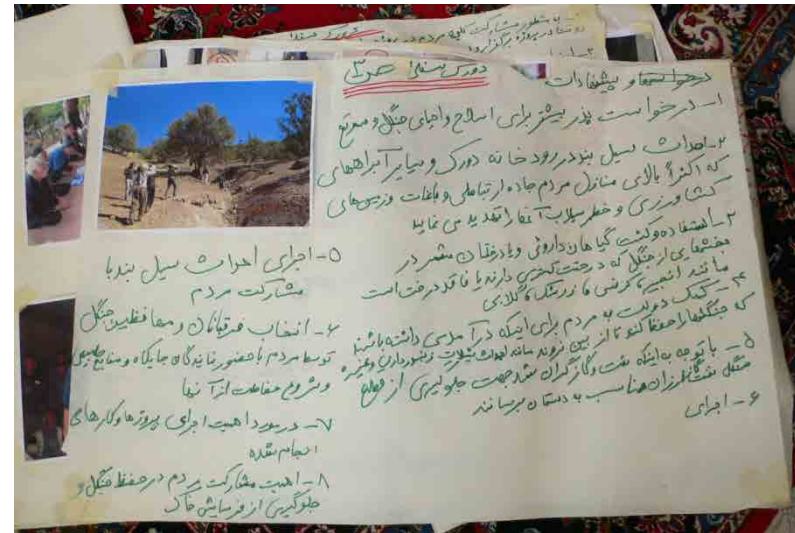 ۱- بمنظور مشارکت کلیه مردم در روستا
دورک سفلی ص ۳
درخواستها و پیشنهادات
۱- درخواست بذر بیشتر برای اصلاح و احیای جنگل و مرتع
۲- احداث سیل بند در رودخانه دورک و سایر آبراههای
که اکثراً بالای منازل مردم جاده ارتباطی و باغات و زمین های
کشاورزی و خطر سیلاب آنها را تهدید می نماید
۳- استفاده و کشت گیاهان داروئی و یا درختان مثمر در
بخشهایی از جنگل که درخت کمتری دارند یا فاقد درخت است
مانند انجیر زرشک گلابی
۴- کمک دولت به مردم برای اینکه درآمدی داشته باشند
که جنگلها را حفظ کنند تا از بین نروند مانند زنبورداری و غیره
۵- با توجه به اینکه نفت و گاز گران شده جهت جلوگیری از قطع
جنگل نفت و گاز ارزان مناسب به دستمان برسانند
۶- اجرای
۵- اجرای احداث سیل بند با
مشارکت مردم
۶- انتخاب قرقبانان و محافظین جنگل
توسط مردم با حضور نمایندگان جایگاه و منابع طبیعی
و شروع حفاظت از آنها
۷- در مورد اهمیت اجرای پروژه ها و کارهای
انجام شده
۸- اهمیت مشارکت مردم در حفظ جنگل و
جلوگیری از فرسایش خاک